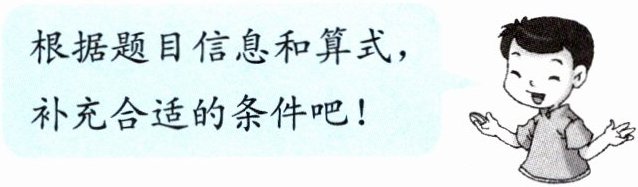 根据题目信息和算式，
补充合适的条件吧！